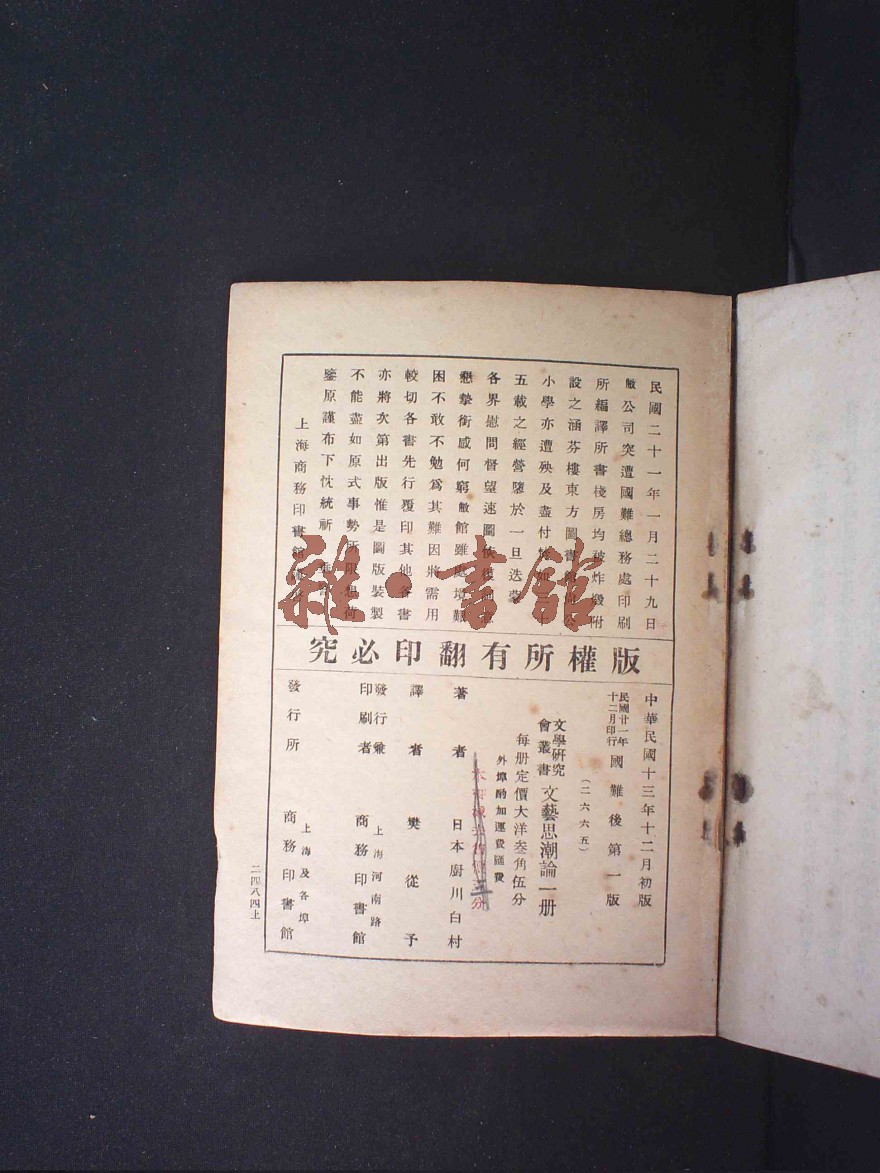 民國二十一年一月二十九日
敝公司突遭國難總務處印刷
所編譯所書棧房均被炸燬附
設之涵芬樓東方圖書館尚公
小學亦遭殃及盡付焚如三十
五載之經營隳於一旦迭蒙
各界慰問督望速圖恢復詞意
懇摯銜感何窮敝館雖處境艱
困不敢不勉爲其難因將需用
較切各書先行覆印其他各書
亦將次第出版惟是圖版裝製
不能盡如原式事勢所限想荷
鑒原謹布下忱統祈
上海商務印書館
雜·書館
版權所有翻印必究
中華民國十三年十二月初版
民國廿一年十二月印行 國難後第一版
(二六六五)
文學研究會叢書 文藝思潮論一册
每册定價大洋叁角伍分
外埠酌加運費匯費
著者 日本廚川白村
譯者 樊從予
發行兼印刷者 上海河南路 商務印書館
發行所 上海及各埠 商務印書館
二四八四上